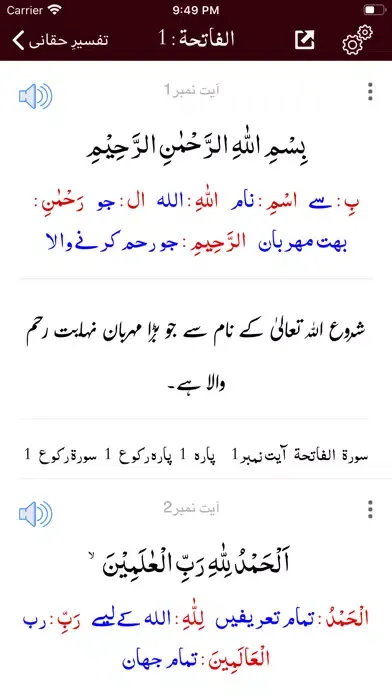 Carrier 9:49 PM
تفسیرِ حقانی الفاتحة : 1
آیت نمبر 1
بِسْمِ اللهِ الرَّحْمٰنِ الرَّحِيْمِ
بِ: سے اسْمِ: نام اللهِ: الله ال: جو رَحْمٰنِ:
بهت مهربان الرَّحِيمِ: جو رحم کرنے والا
شروع اللہ تعالیٰ کے نام سے جو بڑا مہربان نہایت رحم
والا ہے۔
سورة الفاتحة آیت نمبر 1 پارہ 1 پارہ رکوع 1 سورة رکوع 1
آیت نمبر 2
اَلْحَمْدُ لِلّٰهِ رَبِّ الْعٰلَمِيْنَ ۙ
الْحَمْدُ: تمام تعریفیں لِلّٰهِ: الله کے لیے رَبِّ: رب
الْعَالَمِينَ: تمام جهان